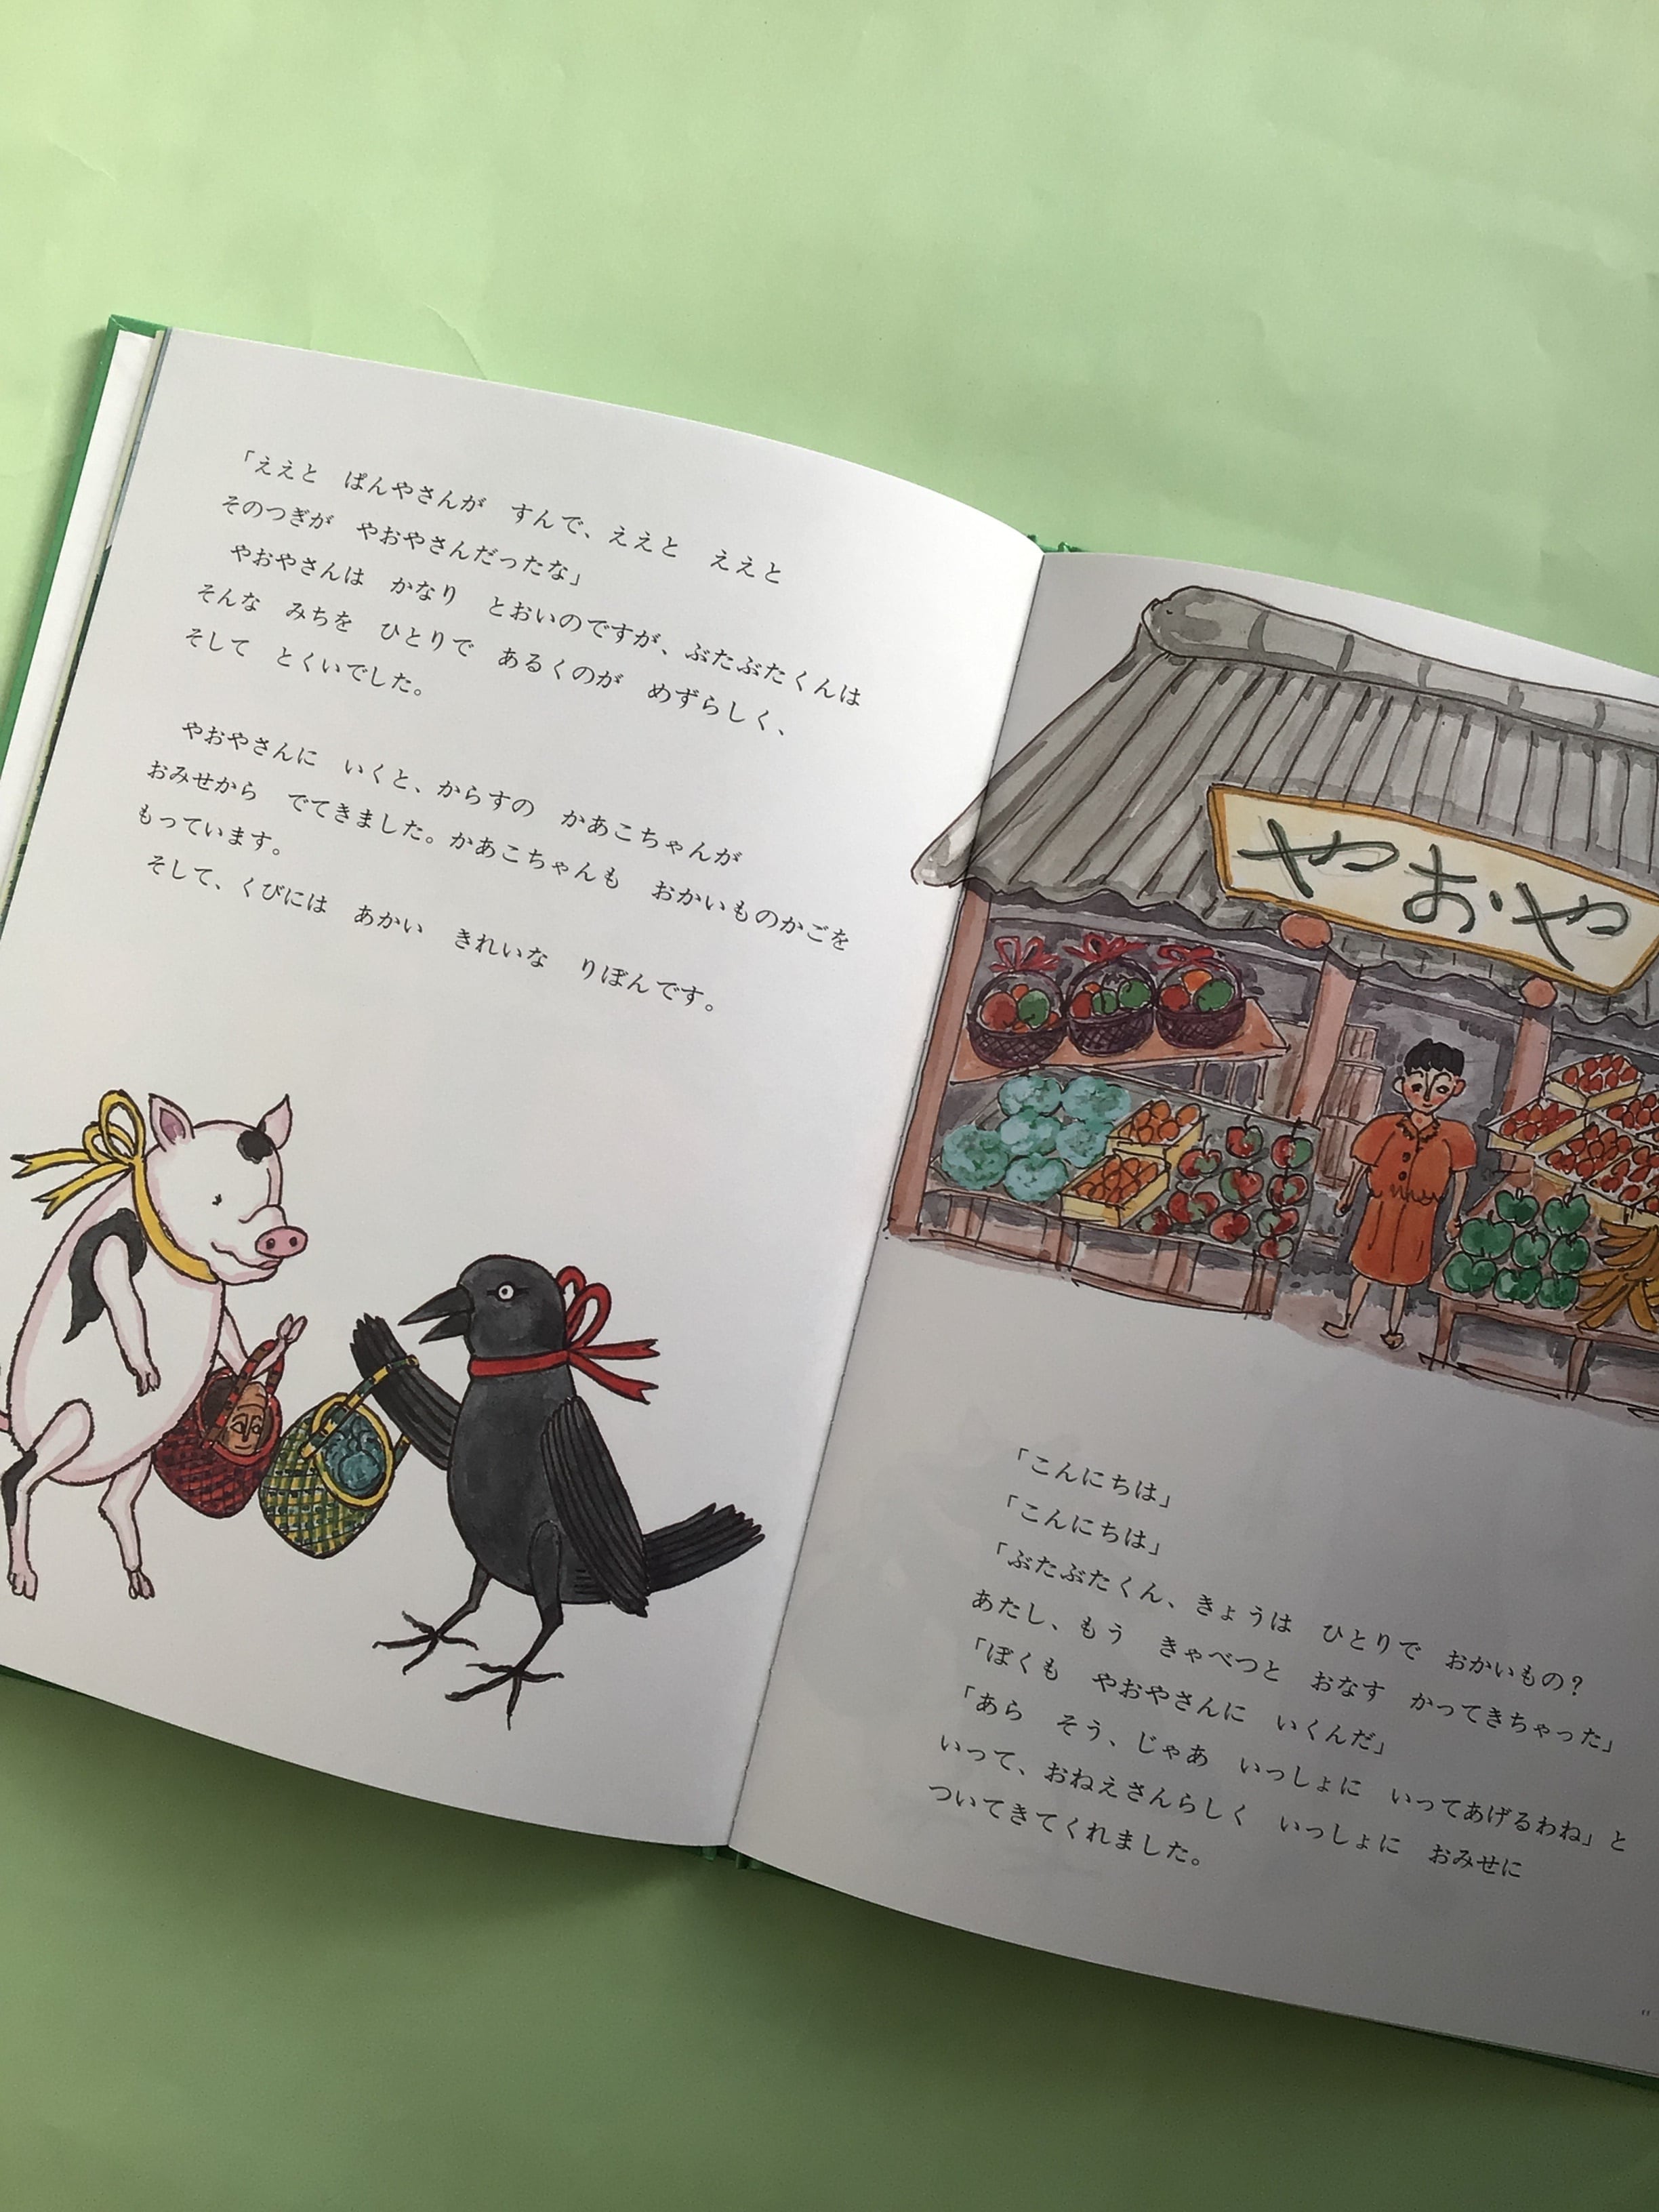 「ええと　ぱんやさんが　すんで、ええと　ええと
そのつぎが　やおやさんだったな」
　やおやさんは　かなり　とおいのですが、ぶたぶたくんは
そんな　みちを　ひとりで　あるくのが　めずらしく、
そして　とくいでした。
　やおやさんに　いくと、からすの　かあこちゃんが
おみせから　でてきました。かあこちゃんも　おかいものかごを
もっています。
　そして、くびには　あかい　きれいな　りぼんです。
やおや
「こんにちは」
「こんにちは」
「ぶたぶたくん、きょうは　ひとりで　おかいもの？
あたし、もう　きゃべつと　おなす　かってきちゃった」
「ぼくも　やおやさんに　いくんだ」
「あら　そう、じゃあ　いっしょに　いってあげるわね」と
いって、おねえさんらしく　いっしょに　おみせに
ついてきてくれました。